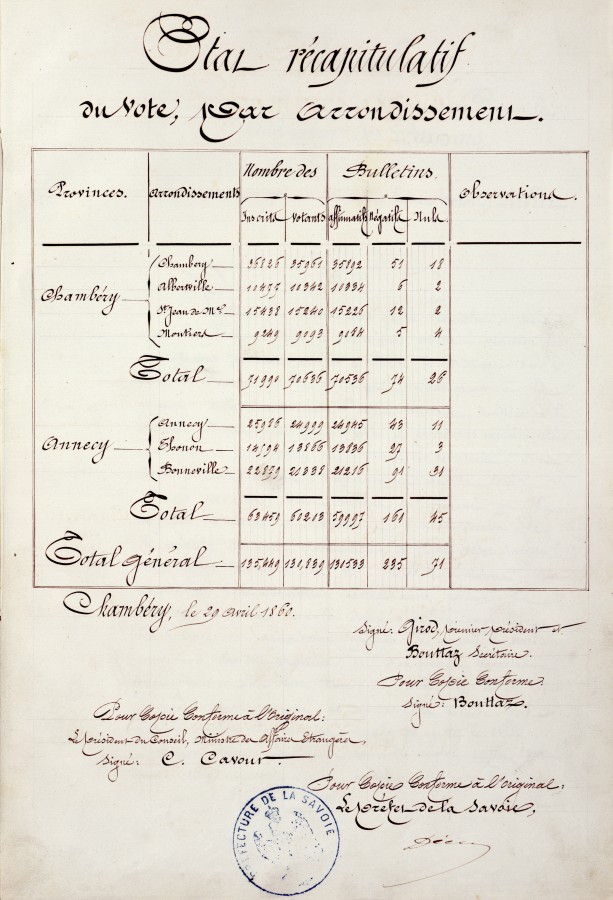 Etat récapitulatif
du Vote, par arrondissement.
Provinces. Arrondissements Nombre des Bulletins Observations.
Inscrits Votants affirmatifs Négatifs Nuls
Chambéry 36826 35961 35892 51 18
Albertville 10477 10342 10334 6 2
Chambéry St Jean de Mne 15438 15240 15226 12 2
Moutiers 9249 9093 9084 5 4
Total 71990 70636 70536 74 26
Annecy 25986 24999 24945 43 11
Annecy Thonon 14594 13866 13836 27 3
Bonneville 22879 21338 21216 91 31
Total 63459 60203 59997 161 45
Total général 135,449 130,839 130533 235 71
Chambéry, le 29 avril 1860.
Signé: Girod, premier président et
Bouttaz Secrétaire.
Pour Copie Conforme.
Signé: Bouttaz.
Pour Copie Conforme à l'Original:
Le président du Conseil, Ministre des Affaires Etrangères,
Signé: C. Cavour.
Pour Copie Conforme à l'original:
Le Préfet de la Savoie,
PRÉFECTURE DE LA SAVOIE